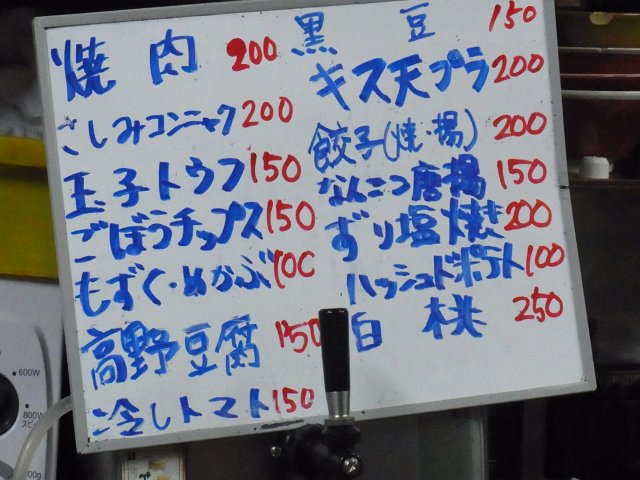 焼肉 200
さしみコンニャク 200
玉子トウフ 150
ごぼうチップス 150
もずく・めかぶ 100
高野豆腐 150
冷しトマト 150
黒豆 150
キス天プラ 200
餃子(焼・揚) 200
なんこつ唐揚 150
ずり塩焼き 200
ハッシュドポテト 100
白桃 250
600W
800W